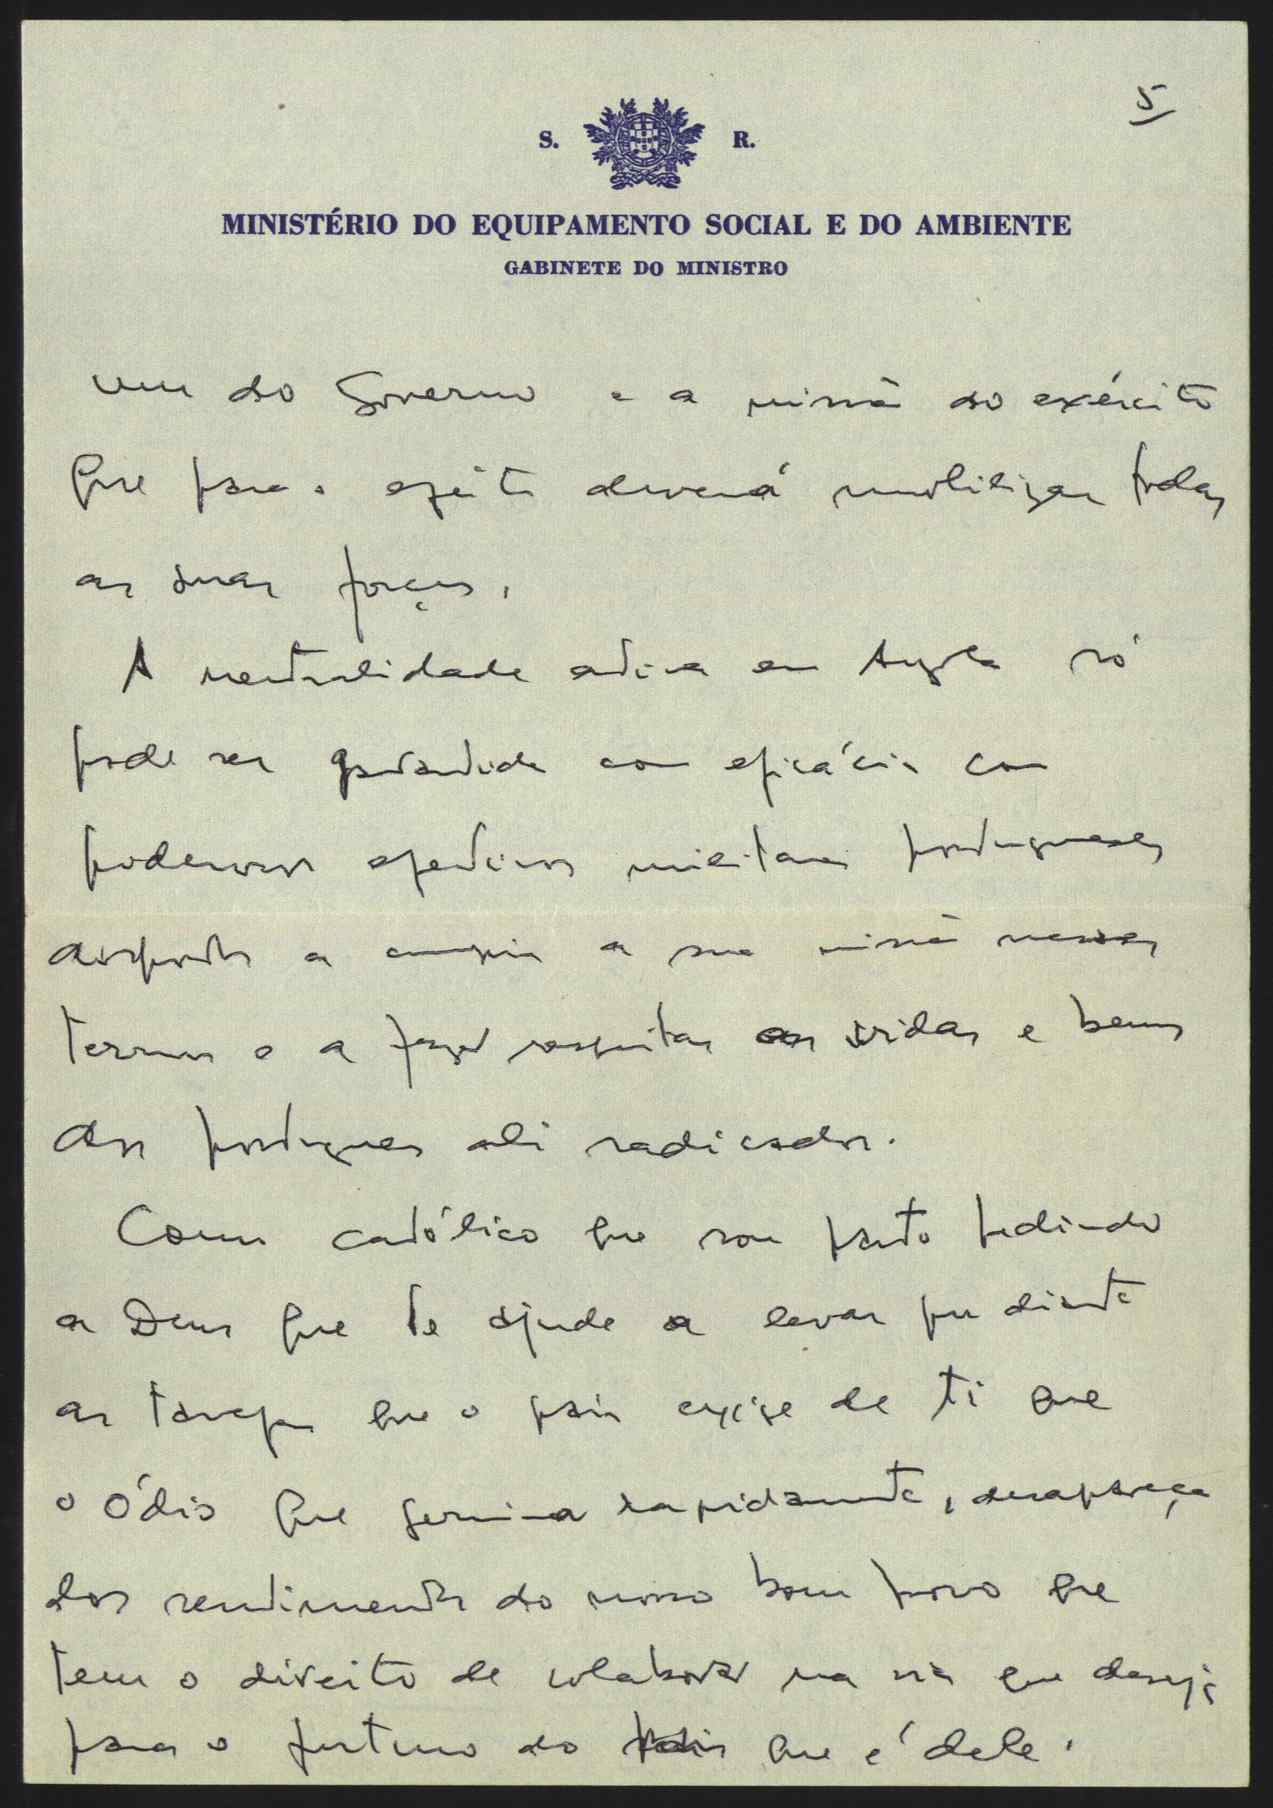 5
S. R.
MINISTÉRIO DO EQUIPAMENTO SOCIAL E DO AMBIENTE
GABINETE DO MINISTRO
do Governo e a missão do exército
que para o efeito deverá mobilizar todas
as suas forças.
A neutralidade activa em Angola só
pode ser garantida com eficácia com
poderosos efectivos militares portugueses
dispostos a cumprir a sua missão nessas
terras e a fazer respeitar as vidas e bens
dos portugueses ali radicados.
Como católico que sou parto pedindo
a Deus que te ajude a levar por diante
as tarefas que o país exige de ti que
o ódio que germina rapidamente, desapareça
dos sentimentos do nosso bom povo que
tem o direito de colaborar na via que deseja
para o futuro do País que é dele.